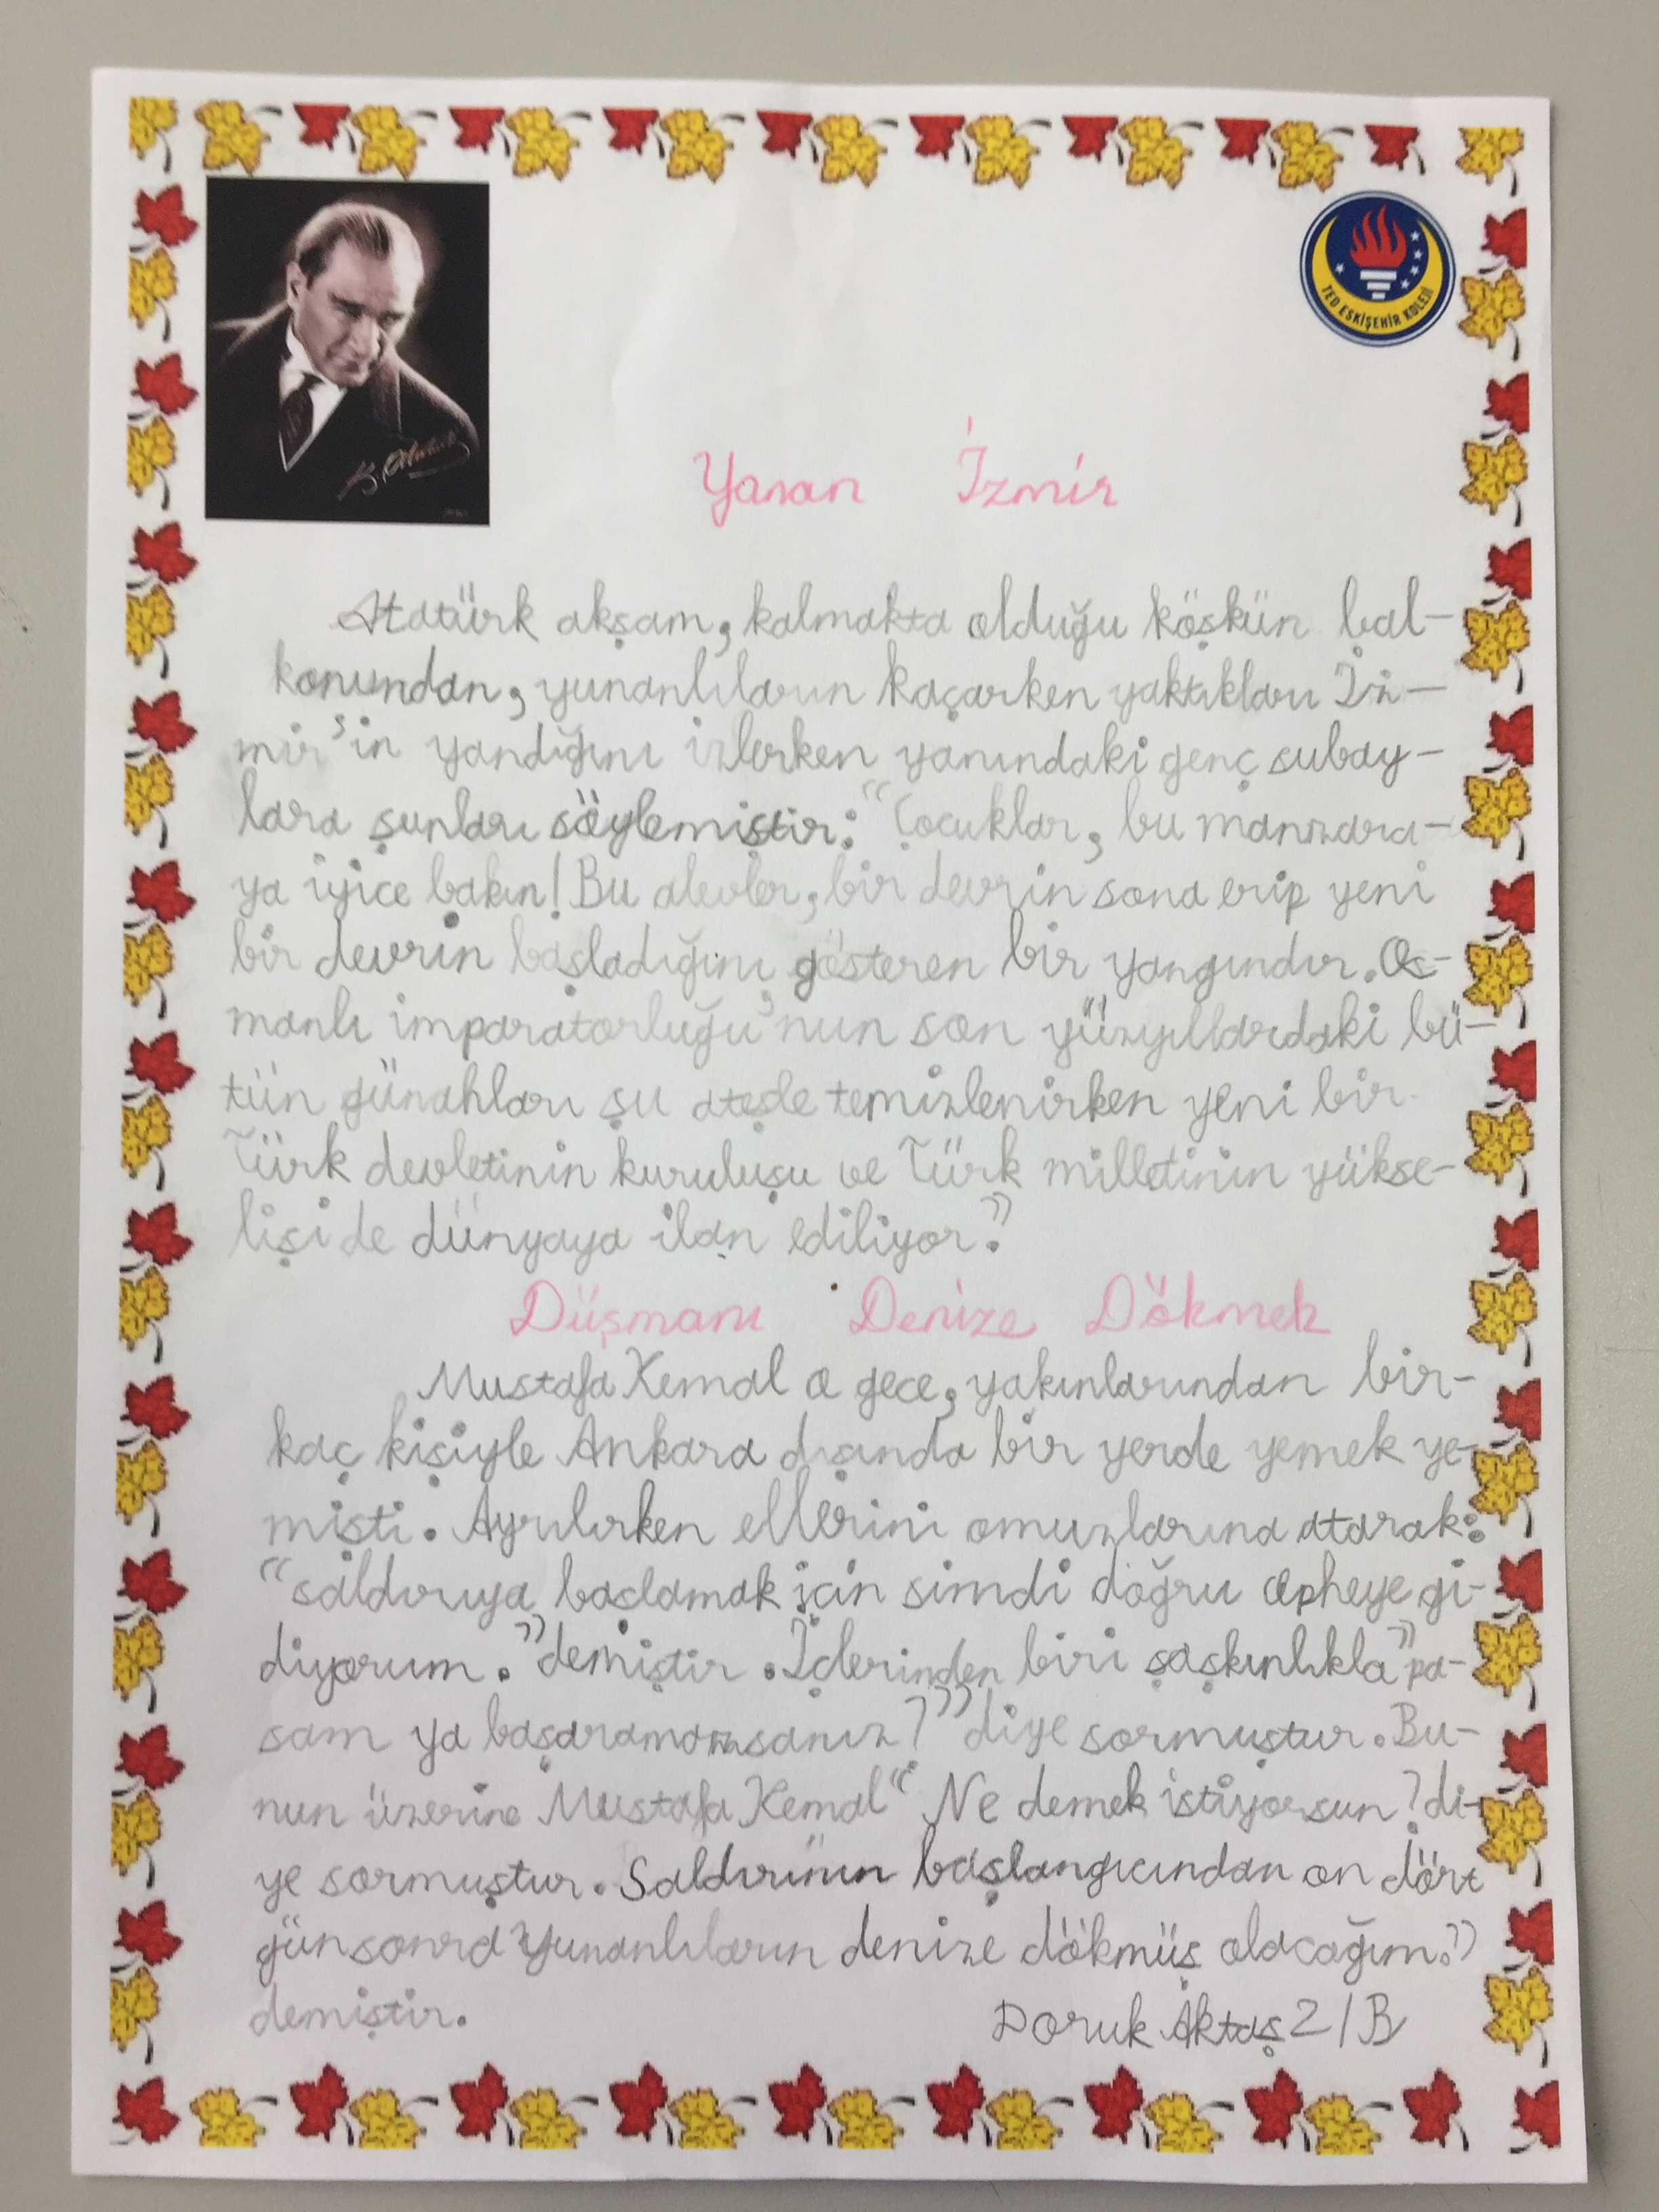 K. Atatürk
TED ESKİŞEHİR KOLEJİ
Yanan İzmir
Atatürk akşam, kalmakta olduğu köşkün bal-
konundan, yunanlıların kaçarken yaktıkları İz-
mir'in yandığını izlerken yanındaki genç subay-
lara şunları söylemiştir: "Çocuklar, bu manzara-
ya iyice bakın! Bu alevler, bir devrin sona erip yeni
bir devrin başladığını gösteren bir yangındır. Os-
manlı imparatorluğu'nun son yüzyıllardaki bü-
tün günahları şu ateşle temizlenirken yeni bir
Türk devletinin kuruluşu ve Türk milletinin yükse-
lişi de dünyaya ilan ediliyor."
Düşmanı Denize Dökmek
Mustafa Kemal o gece, yakınlarından bir-
kaç kişiyle Ankara dışında bir yerde yemek ye-
mişti. Ayrılırken ellerini omuzlarına atarak:
"saldırıya başlamak için simdi doğru cepheye gi-
diyorum." demiştir. İçlerinden biri şaşkınlıkla "pa-
sam ya başaramazsanız?" diye sormuştur. Bu-
nun üzerine Mustafa Kemal "Ne demek istiyorsun? di-
ye sormuştur. Saldırının başlangıcından on dört
gün sonra Yunanlıların denize dökmüş olacağım."
demiştir.
Doruk Aktaş 2/B